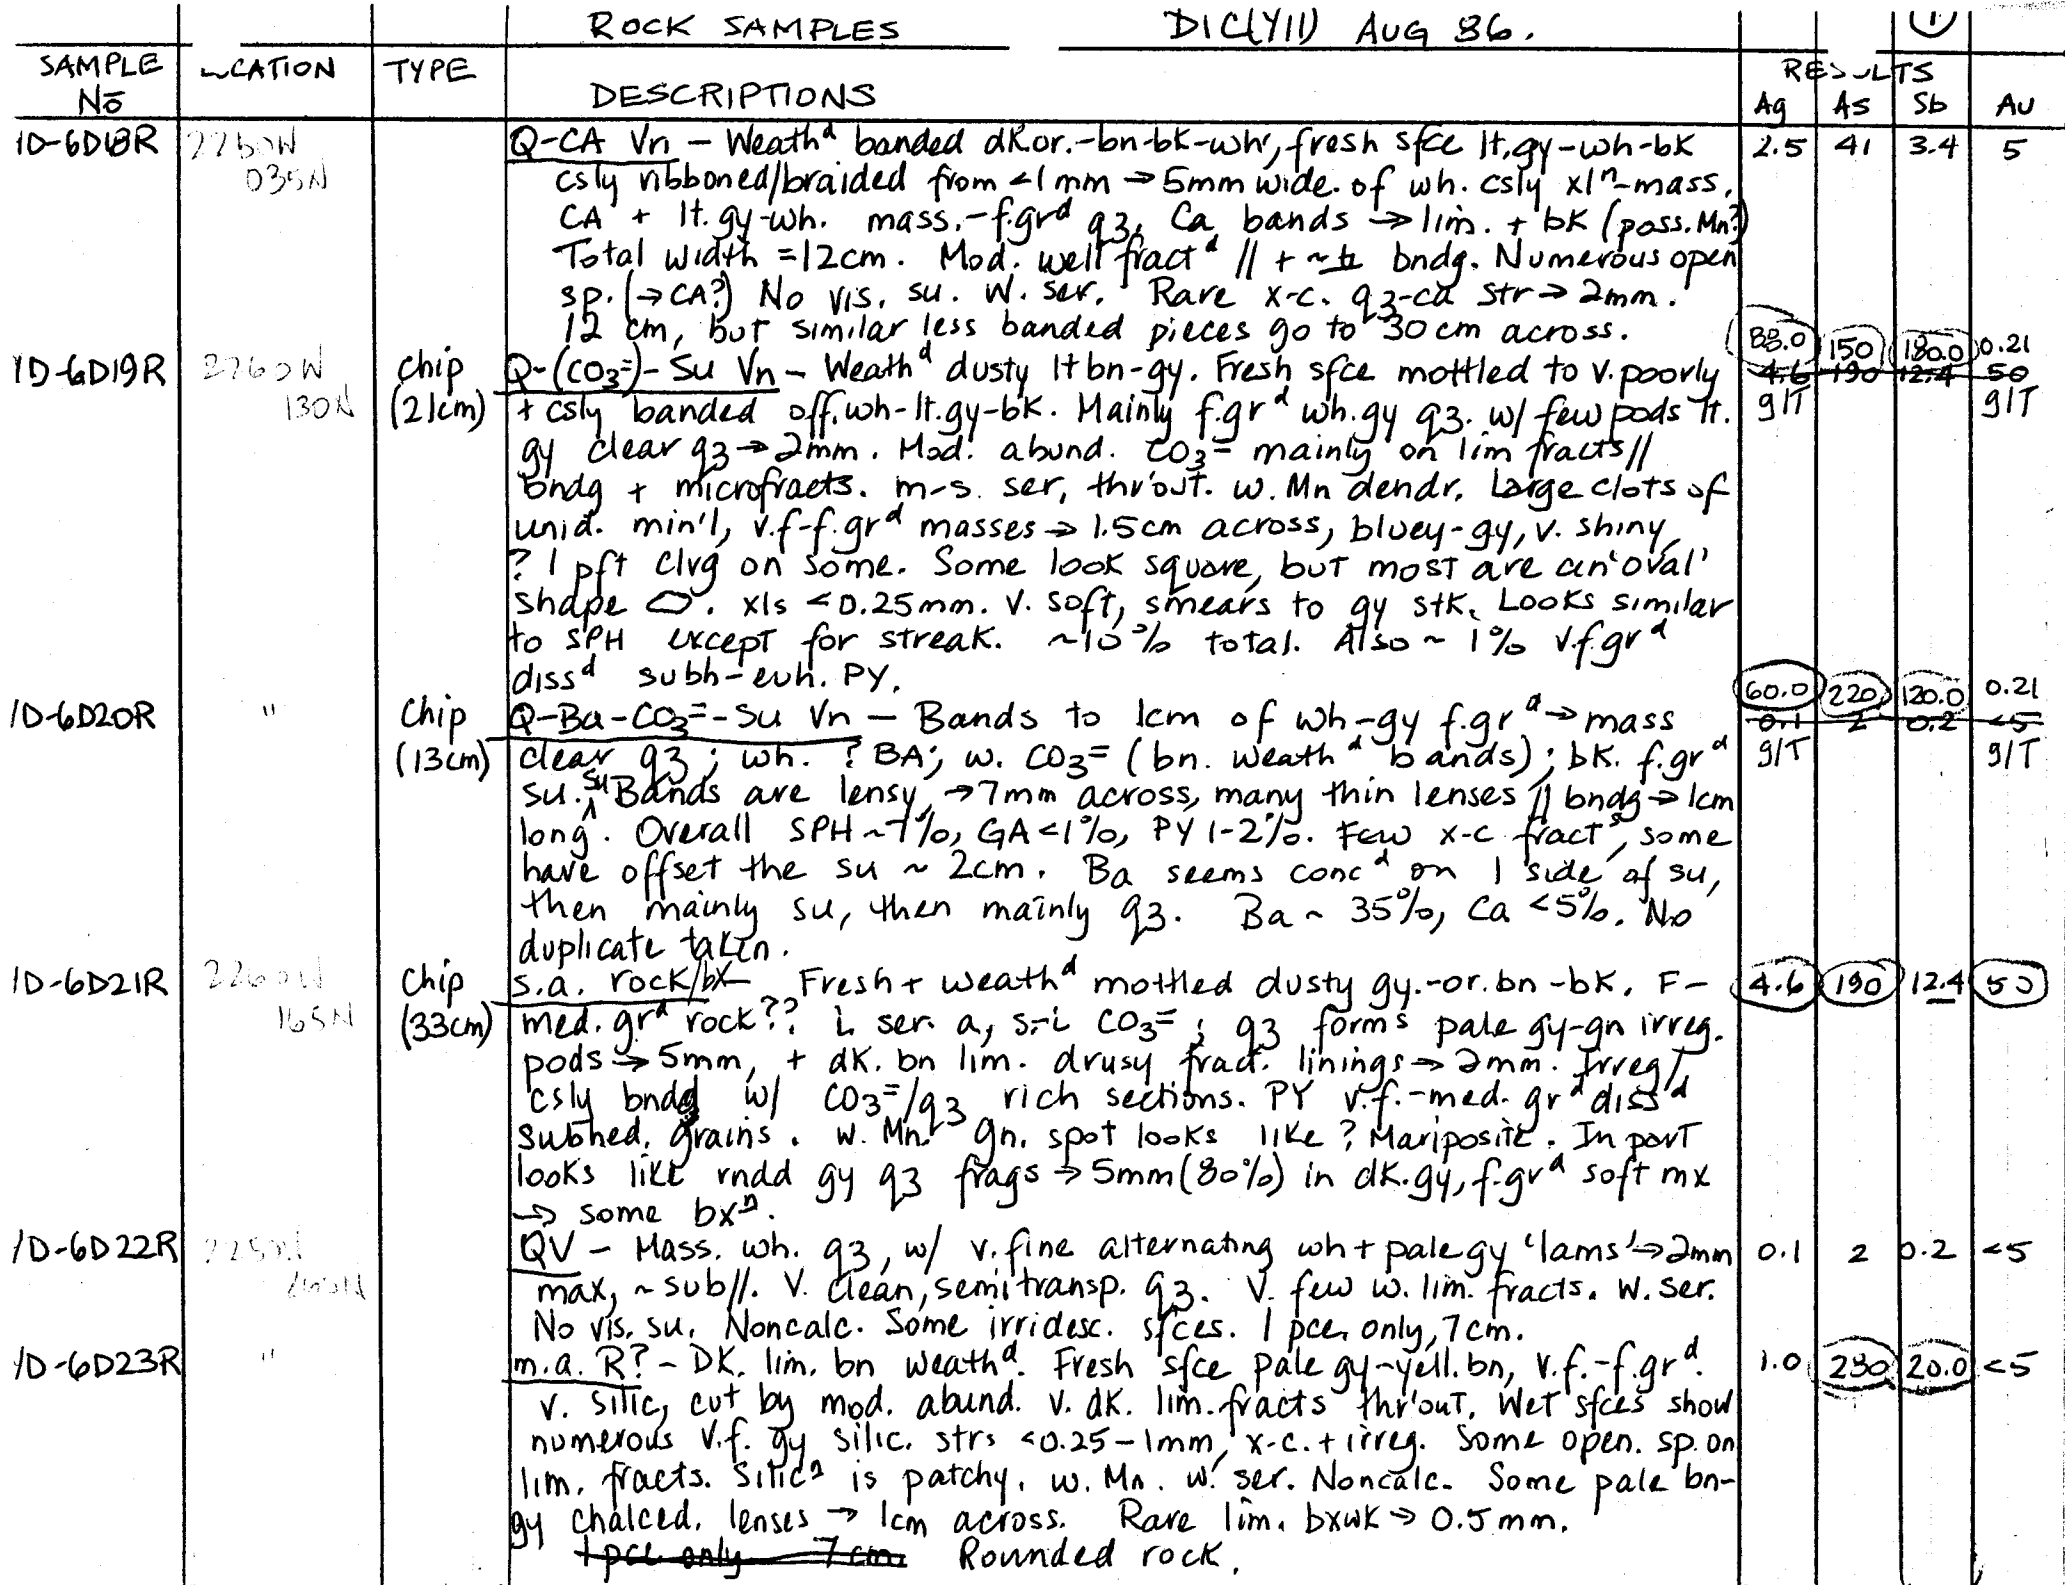 ROCK SAMPLES DIC(YII) AUG 86. 1
SAMPLE No LOCATION TYPE DESCRIPTIONS RESULTS
Ag As Sb Au
1D-6D18R 2260W Q-CA Vn – Weathᵈ banded dk.or.-bn-bk-wh, fresh sfce lt.gy-wh-bk 2.5 41 3.4 5
035N csly ribboned/braided from <1mm → 5mm wide. of wh. csly xlⁿ-mass.
CA + lt.gy-wh. mass.-f.grᵈ q3. Ca bands → lim. + bk (poss. Mn?)
Total width = 12cm. Mod. well fractᵈ // + ~⊥ bndg. Numerous open
sp. (→CA?) No vis. su. w. ser. Rare x-c. q3-ca str → 2mm.
12 cm, but similar less banded pieces go to 30 cm across.
88.0 150 180.0 0.21
1D-6D19R 2260W Chip Q-(CO3=)-Su Vn – Weathᵈ dusty lt bn-gy. Fresh sfce mottled to v. poorly 4.6 190 12.4 50
130N (21cm) + csly banded off.wh-lt.gy-bk. Mainly f.grᵈ wh.gy q3. w/ few pods lt. g/T g/T
gy clear q3 → 2mm. Mod. abund. CO3= mainly on lim fracts //
bndg + microfracts. m-s. ser, thr'out. w. Mn dendr. Large clots of
unid. min'l, v.f-f.grᵈ masses → 1.5cm across, bluey-gy, v. shiny
? 1 pft clvg on some. Some look square, but most are an 'oval'
shape ⬭. xls <0.25mm. V. soft, smears to gy stk. Looks similar
to SPH except for streak. ~10% total. Also ~ 1% v.f.grᵈ
dissᵈ subh-euh. PY.
60.0 220 120.0 0.21
1D-6D20R " Chip Q-Ba-CO3=-Su Vn – Bands to 1cm of wh-gy f.grᵈ → mass 0.1 2 0.2 <5
(13cm) clear q3; wh. ? BA; w. CO3= (bn. weathᵈ bands); bk. f.grᵈ g/T g/T
su. su Bands are lensy, → 7mm across, many thin lenses // bndg → 1cm
long. Overall SPH ~7%, GA <1%, PY 1-2%. Few x-c fractˢ, some
have offset the su ~ 2cm. Ba seems concᵈ on 1 side of su,
then mainly su, then mainly q3. Ba ~ 35%, Ca <5%. No
duplicate taken.
1D-6D21R 2260W Chip s.a. rock/bx – Fresh + weathᵈ mottled dusty gy.-or.bn-bk. F- 4.6 190 12.4 50
165N (33cm) med. grᵈ rock?? i. ser. a, s.-i CO3=; q3 forms pale gy-gn irreg.
pods → 5mm, + dk. bn lim. drusy fract. linings → 2mm. Irreg/
csly bndg w/ CO3=/q3 rich sections. PY v.f.-med. grᵈ dissᵈ
subhed. grains. w. Mn. gn. spot looks like ? Mariposite. In part
looks like rndd gy q3 frags → 5mm (80%) in dk.gy, f.grᵈ soft mx
→ some bxⁿ.
1D-6D22R 2250W QV – Mass. wh. q3, w/ v. fine alternating wh + pale gy 'lams' → 2mm 0.1 2 0.2 <5
max, ~ sub//. V. clean, semitransp. q3. V. few w. lim. fracts. W. ser.
No vis. su. Noncalc. Some irridesc. sfces. 1 pce. only, 7cm.
1D-6D23R " m.a. R? – DK. lim. bn weathᵈ. Fresh sfce pale gy-yell. bn, v.f.-f.grᵈ. 1.0 230 20.0 <5
v. silic, cut by mod. abund. v. dk. lim. fracts thr'out. Wet sfces show
numerous v.f. gy silic. strs <0.25-1mm, x-c. + irreg. Some open. sp. on
lim. fracts. Silicⁿ is patchy. w. Mn. w. ser. Noncalc. Some pale bn-
gy chalced. lenses → 1cm across. Rare lim. bxwk → 0.5mm.
1 pce only 7cm. Rounded rock.